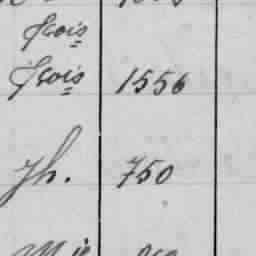 Fçois
Fçois 1556
Jh. 750